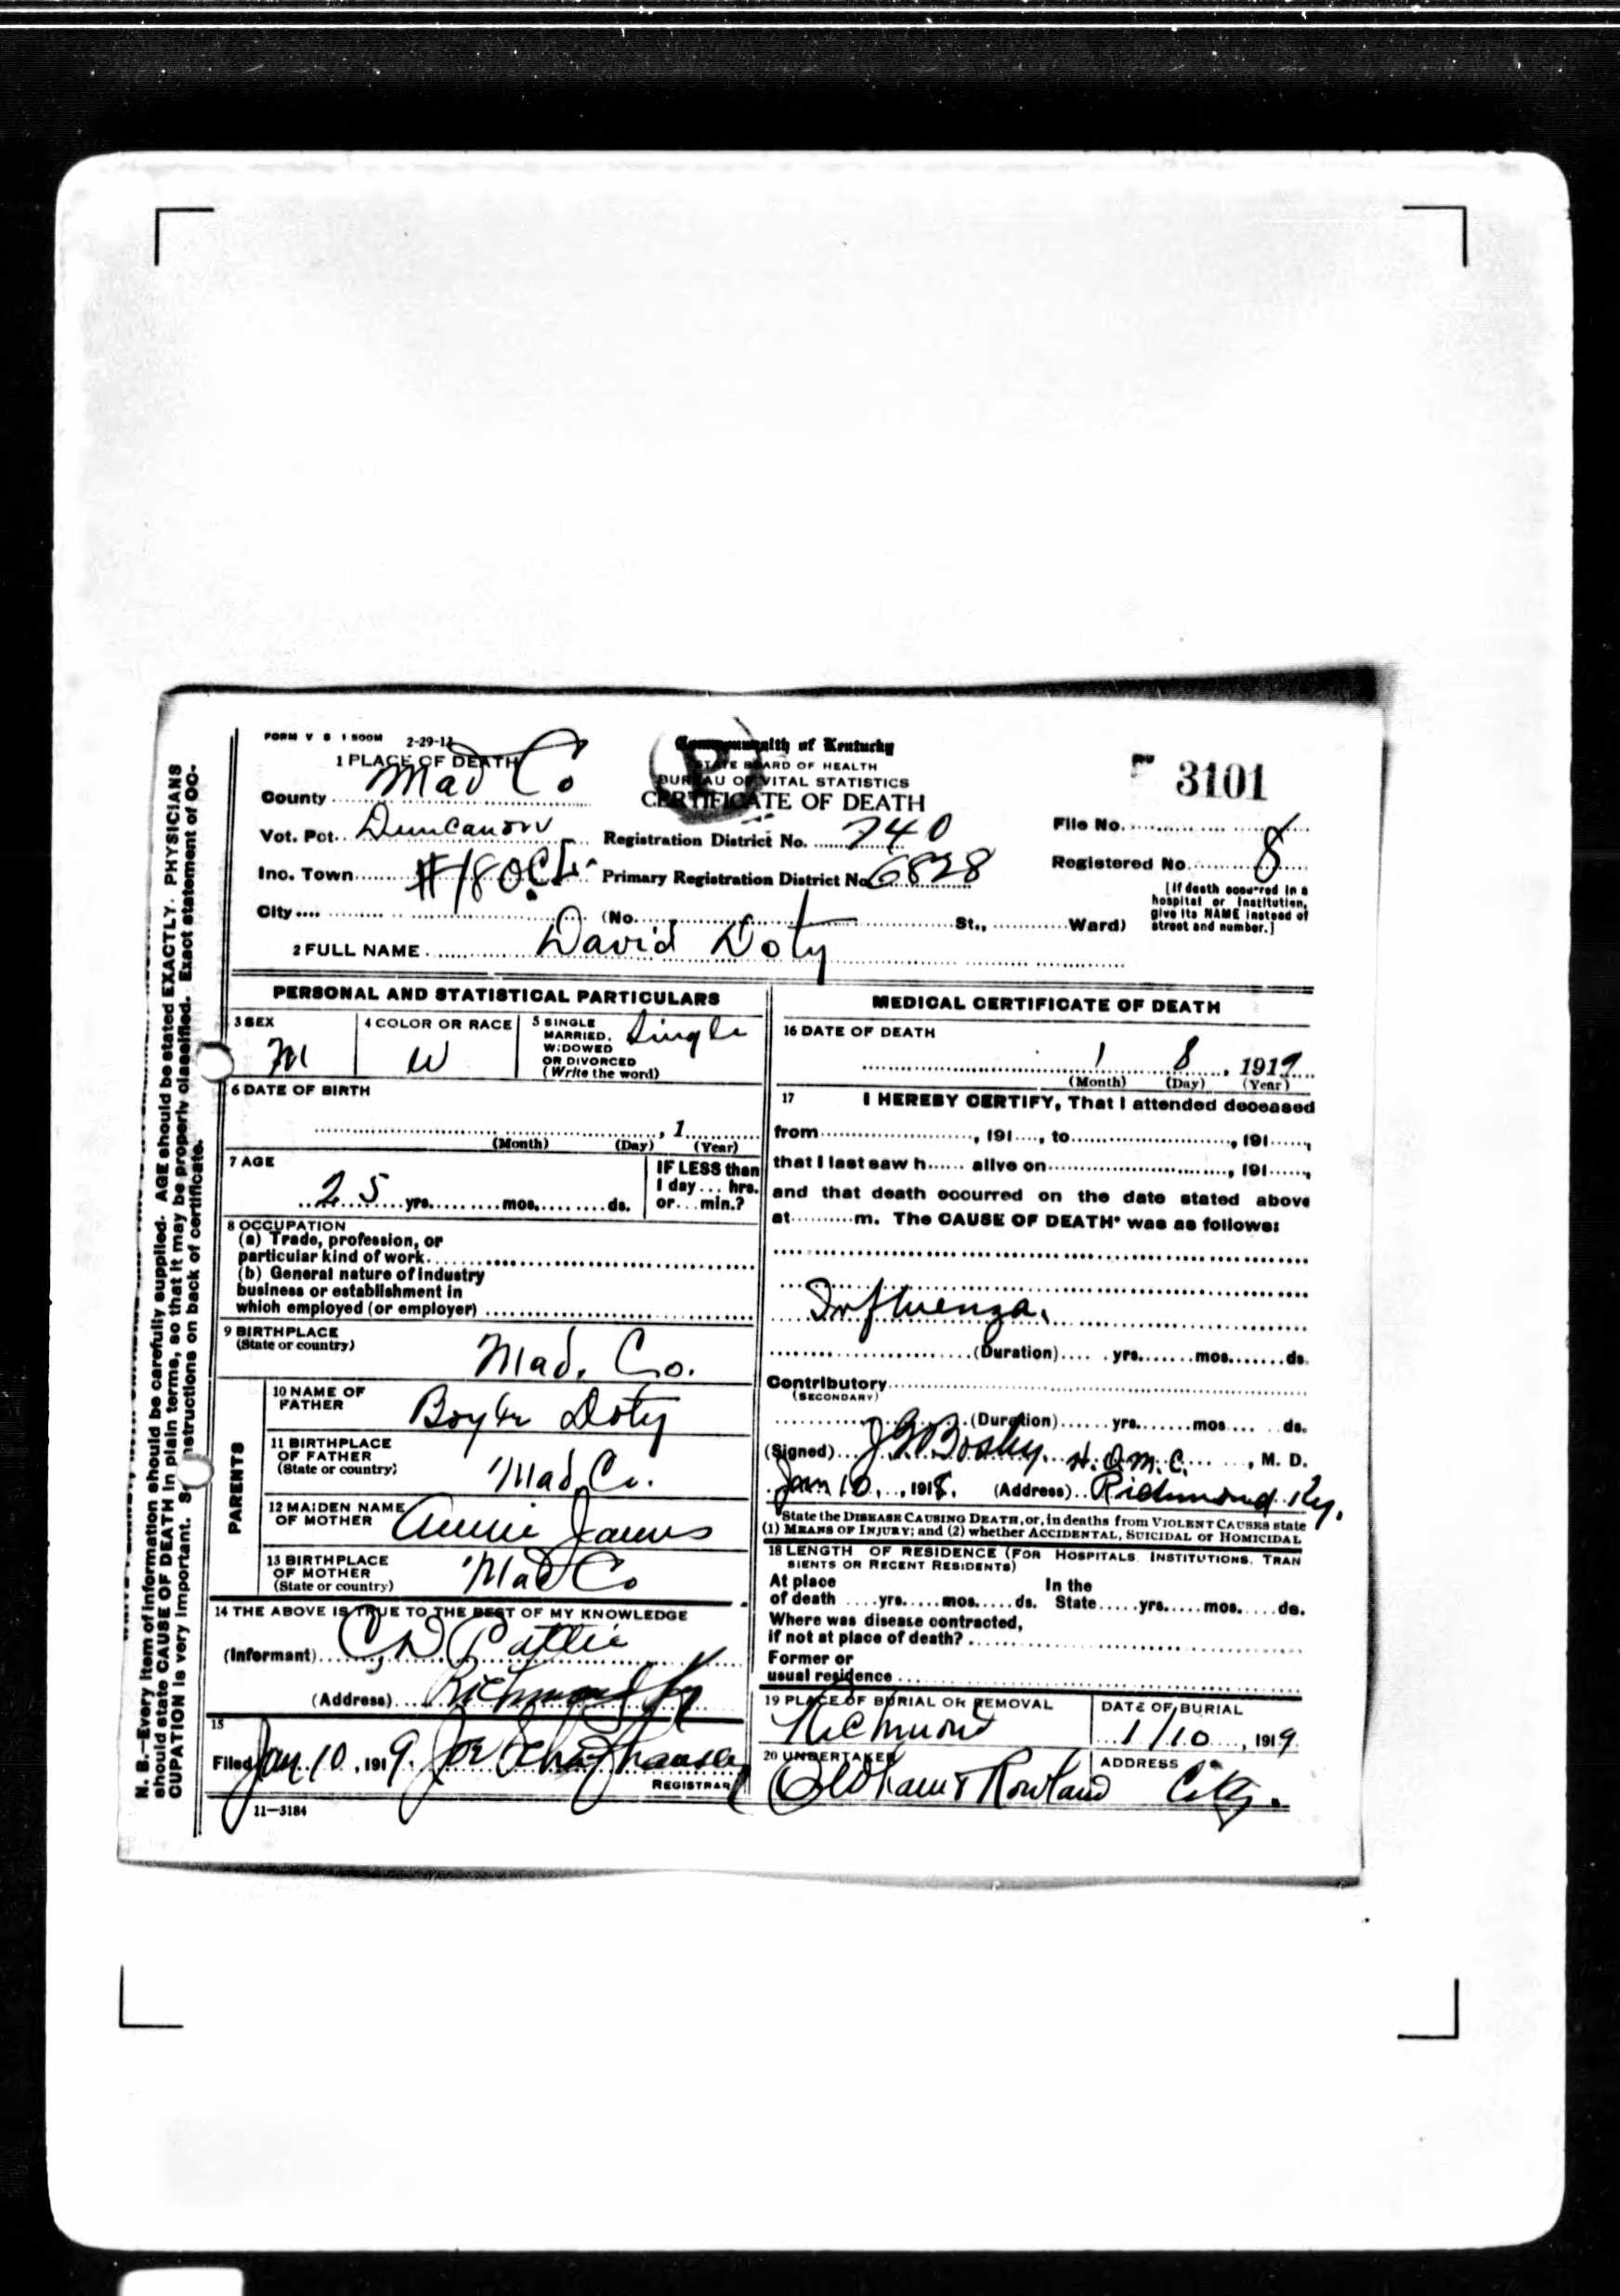 FORM V S 1 500M 2-29-12
1 PLACE OF DEATH
Commonwealth of Kentucky
STATE BOARD OF HEALTH
BUREAU OF VITAL STATISTICS
CERTIFICATE OF DEATH
3101
County Mad Co
Vot. Pct. Duncanon Registration District No. 740 File No.
Inc. Town #180 Primary Registration District No. 6828 Registered No. 8
City (No. St., Ward)
[If death occurred in a
hospital or institution,
give its NAME instead of
street and number.]
2 FULL NAME David Doty
PERSONAL AND STATISTICAL PARTICULARS
3 SEX M
4 COLOR OR RACE W
5 SINGLE
MARRIED,
WIDOWED
OR DIVORCED
(Write the word) Single
6 DATE OF BIRTH
, 1
(Month) (Day) (Year)
7 AGE
25 yrs. mos. ds.
IF LESS than
1 day ... hrs.
or ... min.?
8 OCCUPATION
(a) Trade, profession, or
particular kind of work
(b) General nature of industry
business or establishment in
which employed (or employer)
9 BIRTHPLACE
(State or country) Mad. Co.
PARENTS
10 NAME OF
FATHER Doty
11 BIRTHPLACE
OF FATHER
(State or country) Mad Co.
12 MAIDEN NAME
OF MOTHER Annie
13 BIRTHPLACE
OF MOTHER
(State or country) Mad Co
14 THE ABOVE IS TRUE TO THE BEST OF MY KNOWLEDGE
(Informant) C D Pattie
(Address) Richmond Ky
15
Filed Jan 10, 1919. Joe
REGISTRAR
11—3184
MEDICAL CERTIFICATE OF DEATH
16 DATE OF DEATH
1 8, 1919
(Month) (Day) (Year)
17 I HEREBY CERTIFY, That I attended deceased
from , 191 , to , 191 ,
that I last saw h alive on , 191 ,
and that death occurred on the date stated above
at m. The CAUSE OF DEATH* was as follows:
Influenza.
(Duration) yrs. mos. ds.
Contributory
(SECONDARY)
(Duration) yrs. mos. ds.
(Signed) J G Bosley. , M. D.
Jan 10, 1918. (Address) Richmond Ky.
*State the DISEASE CAUSING DEATH, or, in deaths from VIOLENT CAUSES state
(1) MEANS OF INJURY; and (2) whether ACCIDENTAL, SUICIDAL or HOMICIDAL
18 LENGTH OF RESIDENCE (FOR HOSPITALS. INSTITUTIONS. TRAN
SIENTS OR RECENT RESIDENTS)
At place In the
of death yrs. mos. ds. State yrs. mos. ds.
Where was disease contracted,
if not at place of death?
Former or
usual residence
19 PLACE OF BURIAL OR REMOVAL Richmond
DATE OF BURIAL 1/10, 1919
20 UNDERTAKER Oldham & Rowland
ADDRESS City.
N. B.—Every item of information should be carefully supplied. AGE should be stated EXACTLY. PHYSICIANS
should state CAUSE OF DEATH in plain terms, so that it may be properly classified. Exact statement of OC-
CUPATION is very important. See instructions on back of certificate.